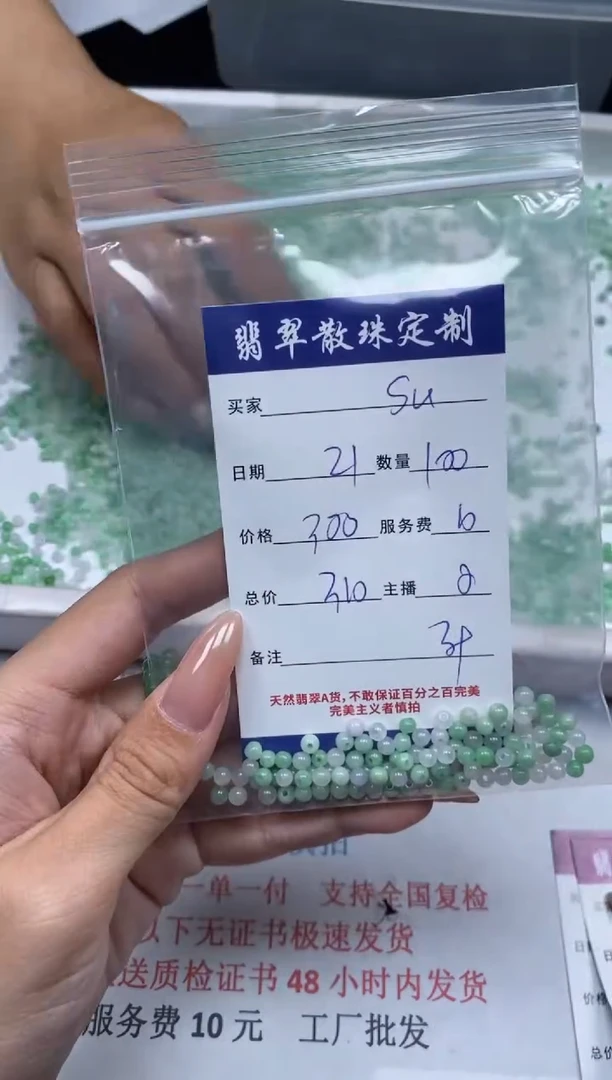 翡翠散珠定制
买家 Su
日期 21 数量 100
价格 300 服务费 10
总价 310 主播
备注
天然翡翠A货，不敢保证百分之百完美
完美主义者慎拍
一单一付 支持全国复检
以下无证书极速发货
送质检证书 48 小时内发货
服务费 10 元 工厂批发
日
价格
总价